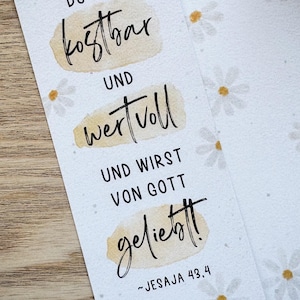 DU
kostbar
UND
wertvoll
UND WIRST
VON GOTT
geliebt!
~JESAJA 43.4